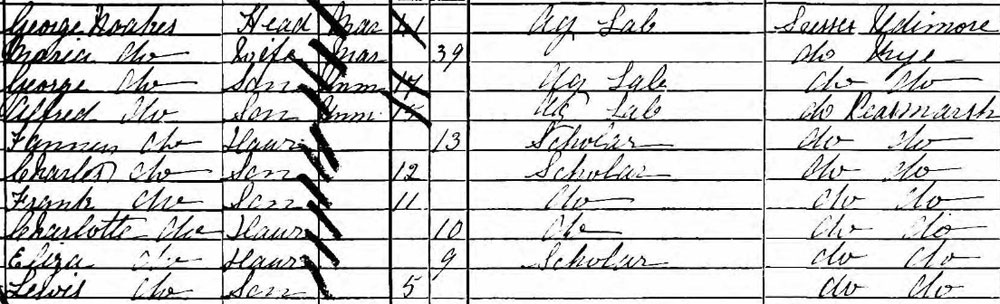 George Noakes Head Mar 41 Ag Lab Sussex Udimore
Maria do Wife Mar 39 do Rye
George do Son Unm 17 Ag Lab do do
Alfred do Son Unm 15 Ag Lab do Peasmarsh
Fanny do Daur 13 Scholar do do
Charles do Son 12 Scholar do do
Frank do Son 11 do do do
Charlotte do Daur 10 do do do
Eliza do Daur 9 Scholar do do
Lewis do Son 5 do do